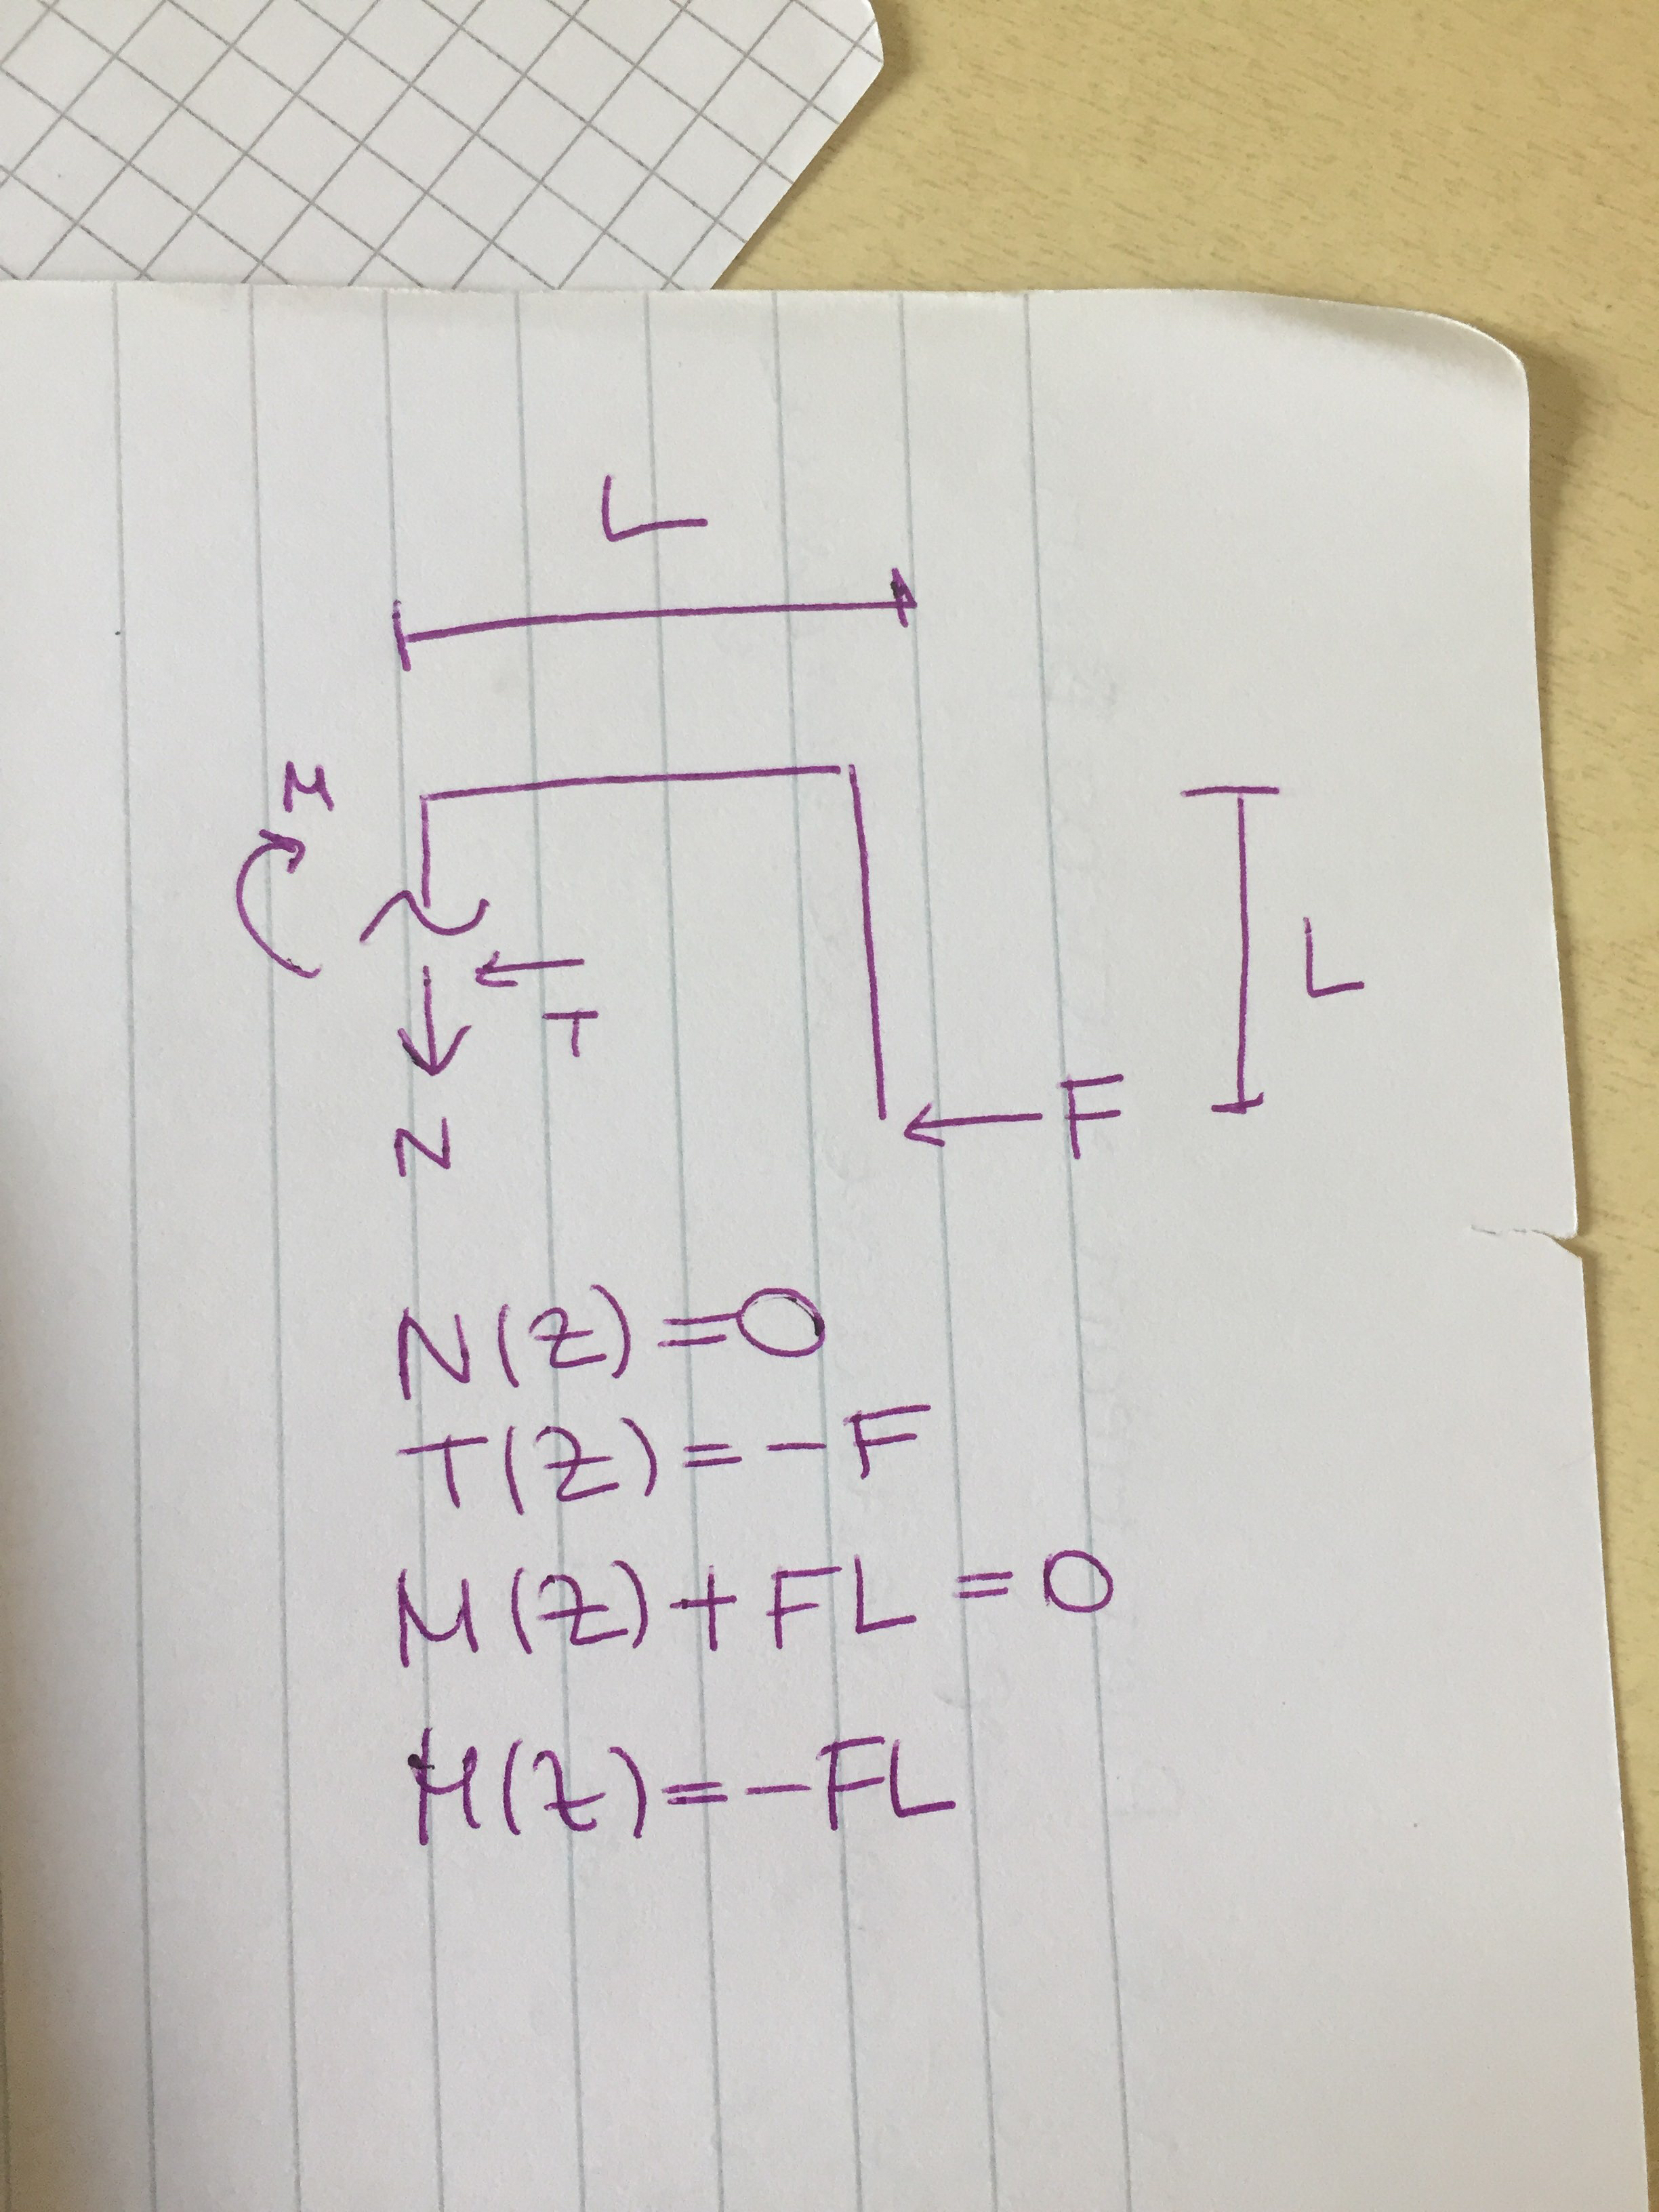 L
M
L
T
F
N
N(z)=0
T(z)=-F
M(z)+FL=0
M(z)=-FL